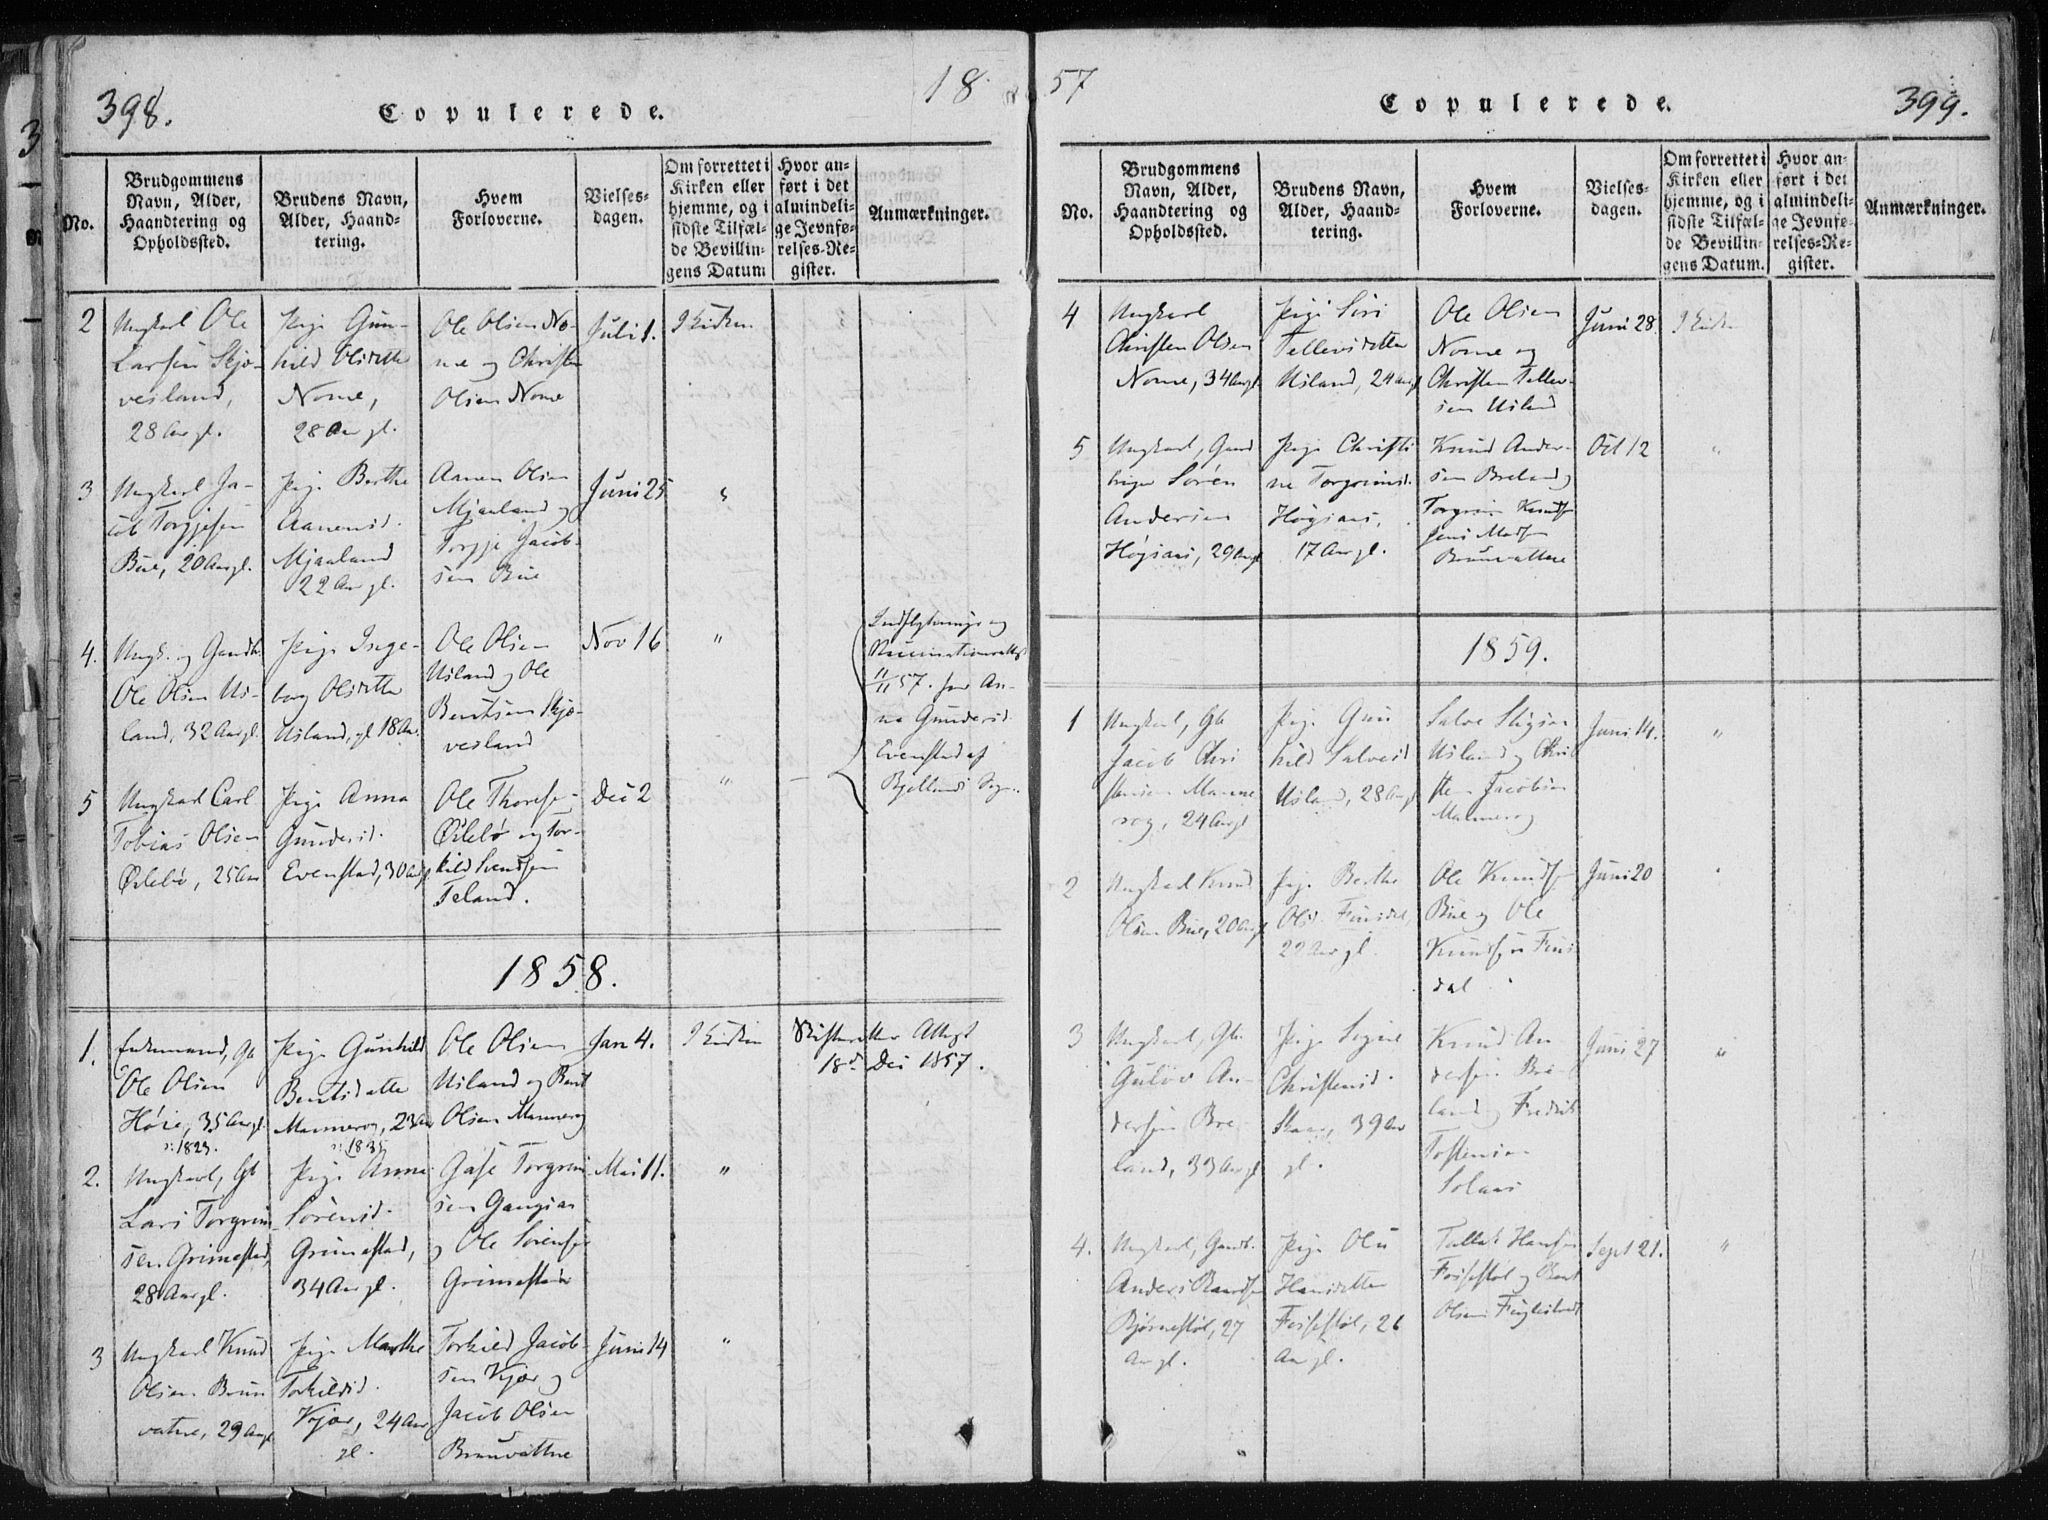 398.
Copulerede.
18
No.
Brudgommens
Navn, Alder,
Haandtering og
Opholdssted.
Brudens Navn,
Alder, Haand-
tering.
Hvem
Forloverne.
Vielses-
dagen.
Om forrettet i
Kirken eller
hjemme, og i
sidste Tilfæl-
de Bevillin-
gens Datum
Hvor an-
ført i det
almindeli-
ge Jevnfø-
relses-Re-
gister.
Anmærkninger.
2
Ungkarl Ole
Larsen Skjø-
vesland,
28 Aar gl.
Pige Gun-
hild Olsdatter
Nome,
28 Aar gl.
Ole Olsen No-
me og Christen
Olsen Nome
Juli 1.
I Kirken
3
Ungkarl Ja-
cob Torgjesen
Bue, 20 Aar gl.
Pige Berthe
Aanensd.
Mjaaland
22 Aar gl.
Aanen Olsen
Mjaaland og
Torgje Jacob-
sen Bue
Juni 25
"
4.
Ungk. og Gaardb.
Ole Olsen Us-
land, 32 Aar gl.
Pige Inge-
borg Olsdatter
Usland, gl 18 Aar
Ole Olsen
Usland og Ole
Bentsen Skjø-
vesland
Nov 16
"
Indflytnings og
11/11 57. for An-
na Gundersd.
Evenstad af
Bjellands Sogn.
5
Ungkarl Carl
Tobias Olsen
Øslebø, 25 Aar
Pige Anna
Gundersd.
Evenstad, 30 Aar gl
Ole Thorsen
Øslebø og Tor-
kild Svendsen
Føland.
Dec 2
"
1858.
1.
Enkemand, Gb
Ole Olsen
Høie, 35 Aar gl.
1823.
Pige Gunhild
Bentsdatter
Mannerog, 23 Aar
1835
Ole Olsen
Usland og Bent
Olsen Mannerog
Jan 4.
I Kirken
Skifteretten Attest
18de Dec 1857.
2.
Ungkarl, Gb
Lars Torgrim
sen Grimestad,
28 Aar gl.
Pige Anna
Sørensd.
Grimestad,
34 Aar gl.
Torgrim
sen Gangsaas
og Ole Sørensen
Grimestad
Mai 11.
"
3
Ungkarl Knud
Olsen Brun
vatne, 29 Aar gl
Pige Marthe
Torkildsd.
Kjær, 24 Aar
gl.
Torkild Jacob-
sen Kjær og
Jacob Olsen
Brunvattne
Juni 14
"
57
Copulerede.
399.
No.
Brudgommens
Navn, Alder,
Haandtering og
Opholdssted.
Brudens Navn,
Alder, Haand-
tering.
Hvem
Forloverne.
Vielses-
dagen.
Om forrettet i
Kirken eller
hjemme, og i
sidste Tilfæl-
de Bevillin-
gens Datum.
Hvor an-
ført i det
almindeli-
ge Jevnfø-
relses-Re-
gister.
Anmærkninger.
4
Ungkarl
Christen Olsen
Nome, 34 Aar gl
Pige Siri
Tellevsdatter
Usland, 24 Aar gl
Ole Olsen
Nome og
Christen Tellev-
sen Usland
Juni 28
I Kirken
5
Ungkarl, Gaard
bruger Søren
Andersen
Høgsaas, 29 Aar gl
Pige Christi
ne Torgrimsd.
Høgsaas,
17 Aar gl.
Knud Ander-
sen Breland og
Torgrim Knudsen
Jens Madsen
Brunvattne
Oct 12
"
1859.
1
Ungkarl, Gb
Jacob Chri
stensen Manne
rog, 24 Aar gl
Pige Gun
hild Salvesd
Usland, 28 Aar gl
Salve Stigsen
Usland og Chri
sten Jacobsen
Mannerog
Juni 14.
"
2
Ungkarl Knud
Olsen Bue, 20 Aar gl
Pige Berthe
Olsd. Finsdal,
22 Aar gl.
Ole Knudsen
Bue og Ole
Knudsen Fins
dal
Juni 20
"
3
Ungkarl, Gb.
Guluv An-
dersen Bre
land, 33 Aar gl
Pige Sogne
Christensd.
Skaar, 39 Aar
gl.
Knud An
dersen Bre
land og Fredrik
Tostensen
Solaas
Juni 27
"
4.
Ungkarl, Gaardb.
Anders Baardsen
Bjørnestøl, 27
Aar gl.
Pige Olu
Hansdatter
Fossestøl, 26
Aar gl.
Tallak Hansen
Fossestøl og Bent
Olsen Fuglestvedt
Sept 21.
"